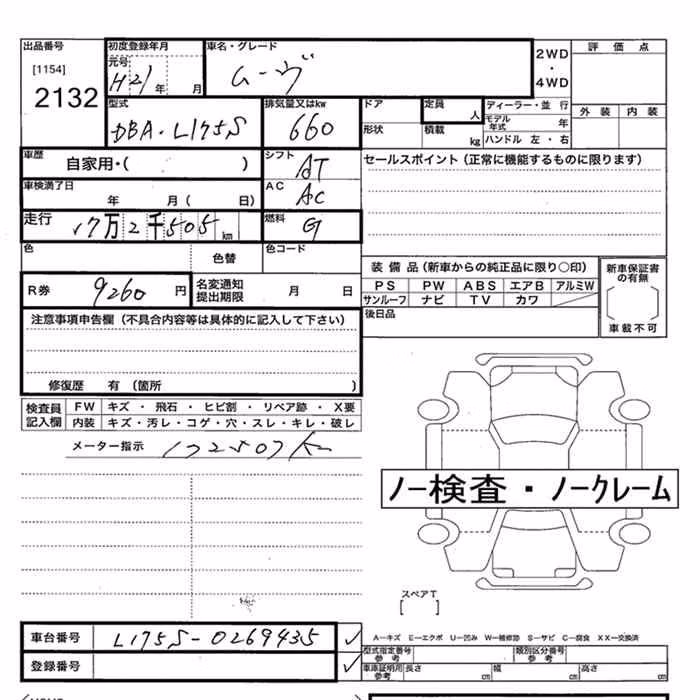 出品番号 初度登録年月 車名・グレード 2WD 評価点
[1154] 元号 ムーヴ ・
2132 H21 年 月 4WD
型式 排気量又はkw ドア 定員 人 ディーラー・並 行 外装 内装
DBA-L175S 660 形状 積載 kg モデル年式 年
ハンドル 左・右
車歴 自家用・( ) シフト AT セールスポイント(正常に機能するものに限ります)
車検満了日 年 月( 日) AC AC
走行 17万2千505km 燃料 G
色 色替 色コード
装備品(新車からの純正品に限り○印) 新車保証書の有無
R券 9260 円 名変通知提出期限 月 日 PS PW ABS エアB アルミW
サンルーフ ナビ TV カワ
注意事項申告欄(不具合内容等は具体的に記入して下さい) 後日品 車載不可
修復歴 有(箇所 )
検査員記入欄 FW キズ・飛石・ヒビ割・リペア跡・X要
内装 キズ・汚レ・コゲ・穴・スレ・キレ・破レ
メーター指示 172507km
ノー検査・ノークレーム
スペアT
[ ]
車台番号 L175S-0269435 ✓ A—キズ E—エクボ U—凹み W—補修跡 S—サビ C—腐食 XX—交換済
型式指定番号 参考 類別区分番号 参考
登録番号 ✓ 車庫証明用参考 長さ cm 幅 cm 高さ cm